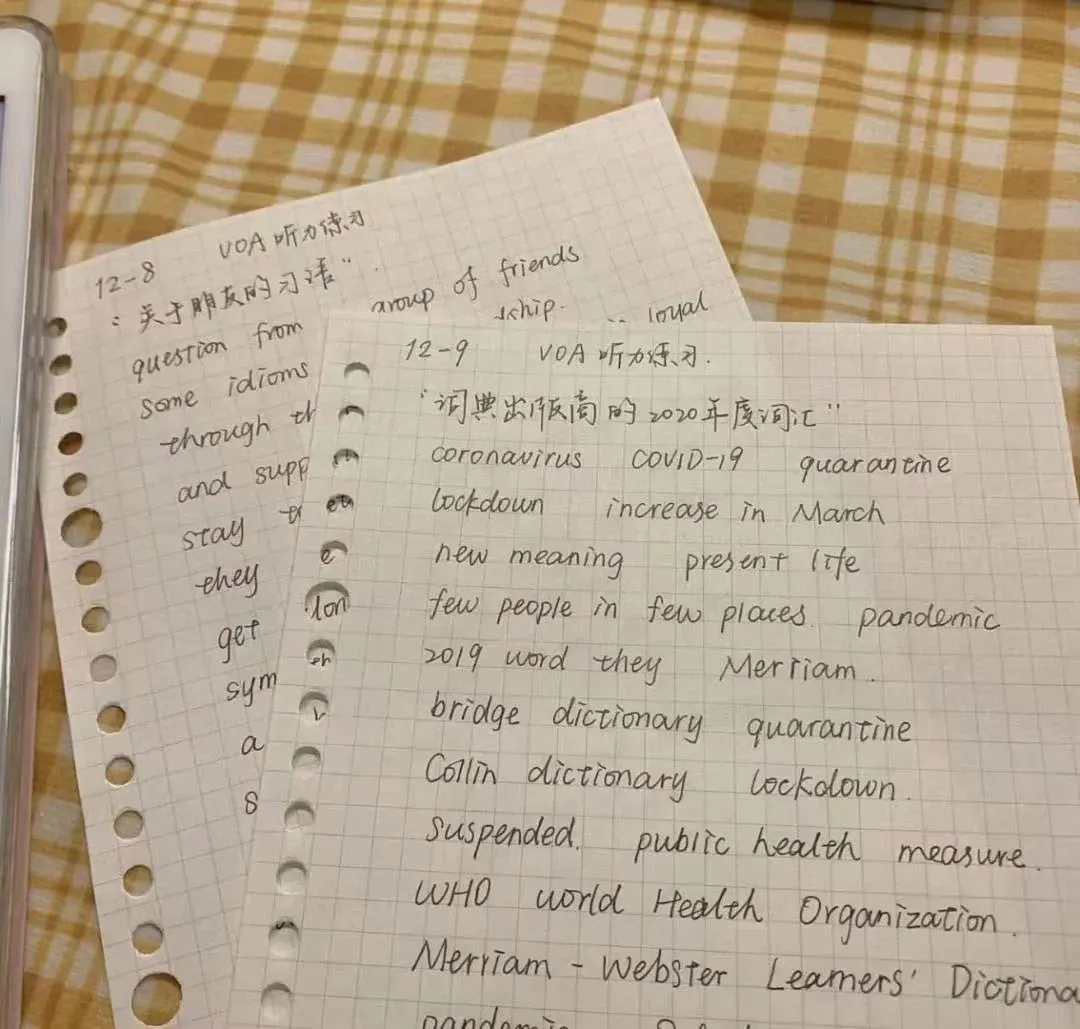 12-8 VOA 听力练习
：关于朋友的习语"
question from group of friends
some idioms loyal
through
and
stay
they
get
a
8
12-9 VOA 听力练习.
"词典出版商的2020年度词汇"
coronavirus COVID-19 quarantine
lockdown increase in March
new meaning present life
few people in few places. pandemic
2019 word they Merriam.
bridge dictionary quarantine
Collin dictionary lockdown.
suspended. public health measure.
WHO world Health Organization.
Merriam-Webster Learners' Dictiona